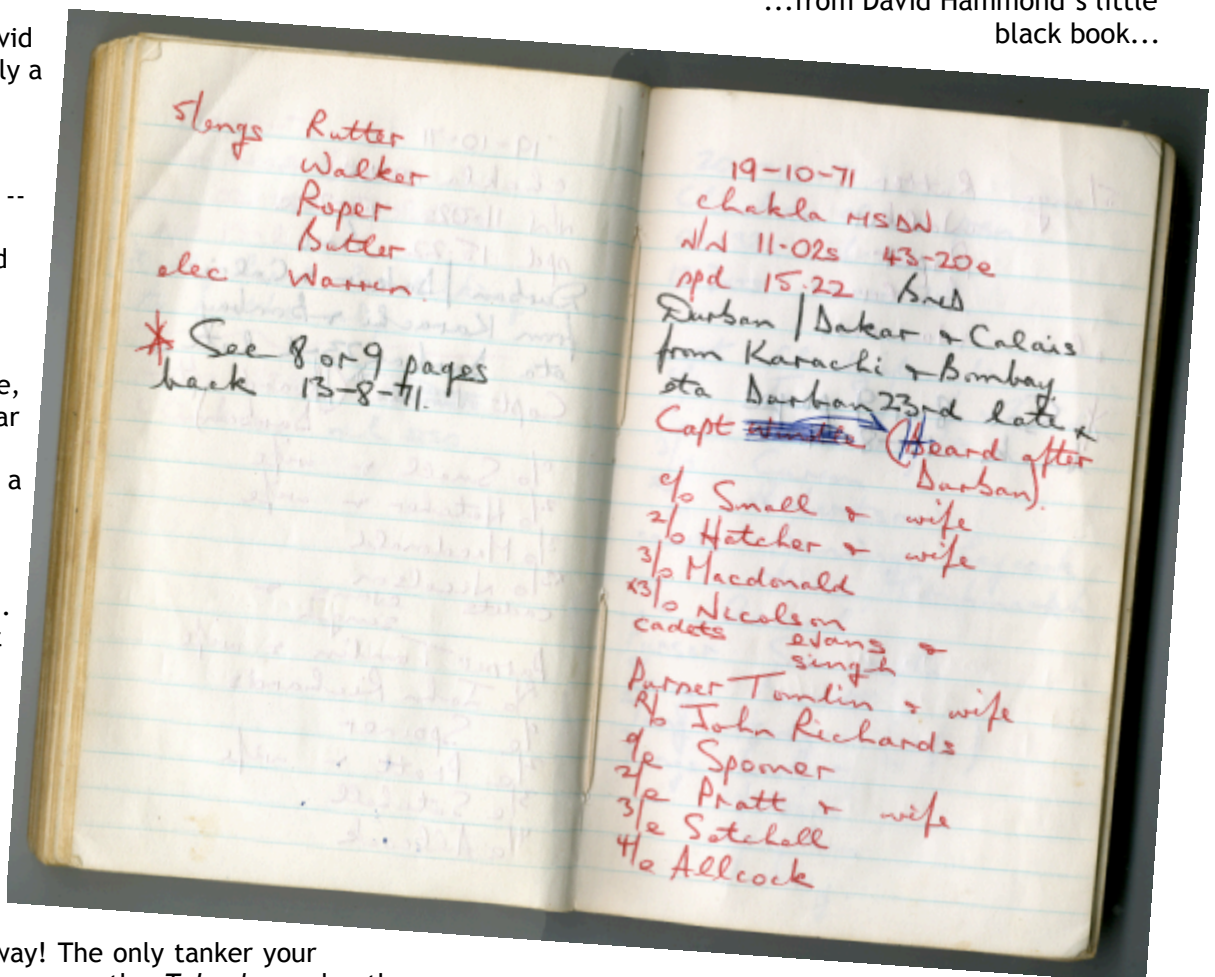 ...from David Hammond's little
black book...
vid
ly a
--
d
e,
ar
a
.
5/engs Rutter
Walker
Roper
Butler
elec Warren.
* See 8 or 9 pages
back 13-8-71.
19-10-71
chakla MSDN
N/N 11-02s 43-20e
spd 15.22
Durban / Dakar & Calais
from Karachi & Bombay
eta Durban 23rd late x
Capt (Heard after
Durban).
c/o Small & wife
2/o Hatcher & wife
3/o Macdonald
x3/o Nicolson
cadets evans &
singh
Purser Tomlin & wife
R/o John Richards
c/e Spooner
2/e Pratt & wife
3/e Satchell
4/e Allcock
way! The only tanker your